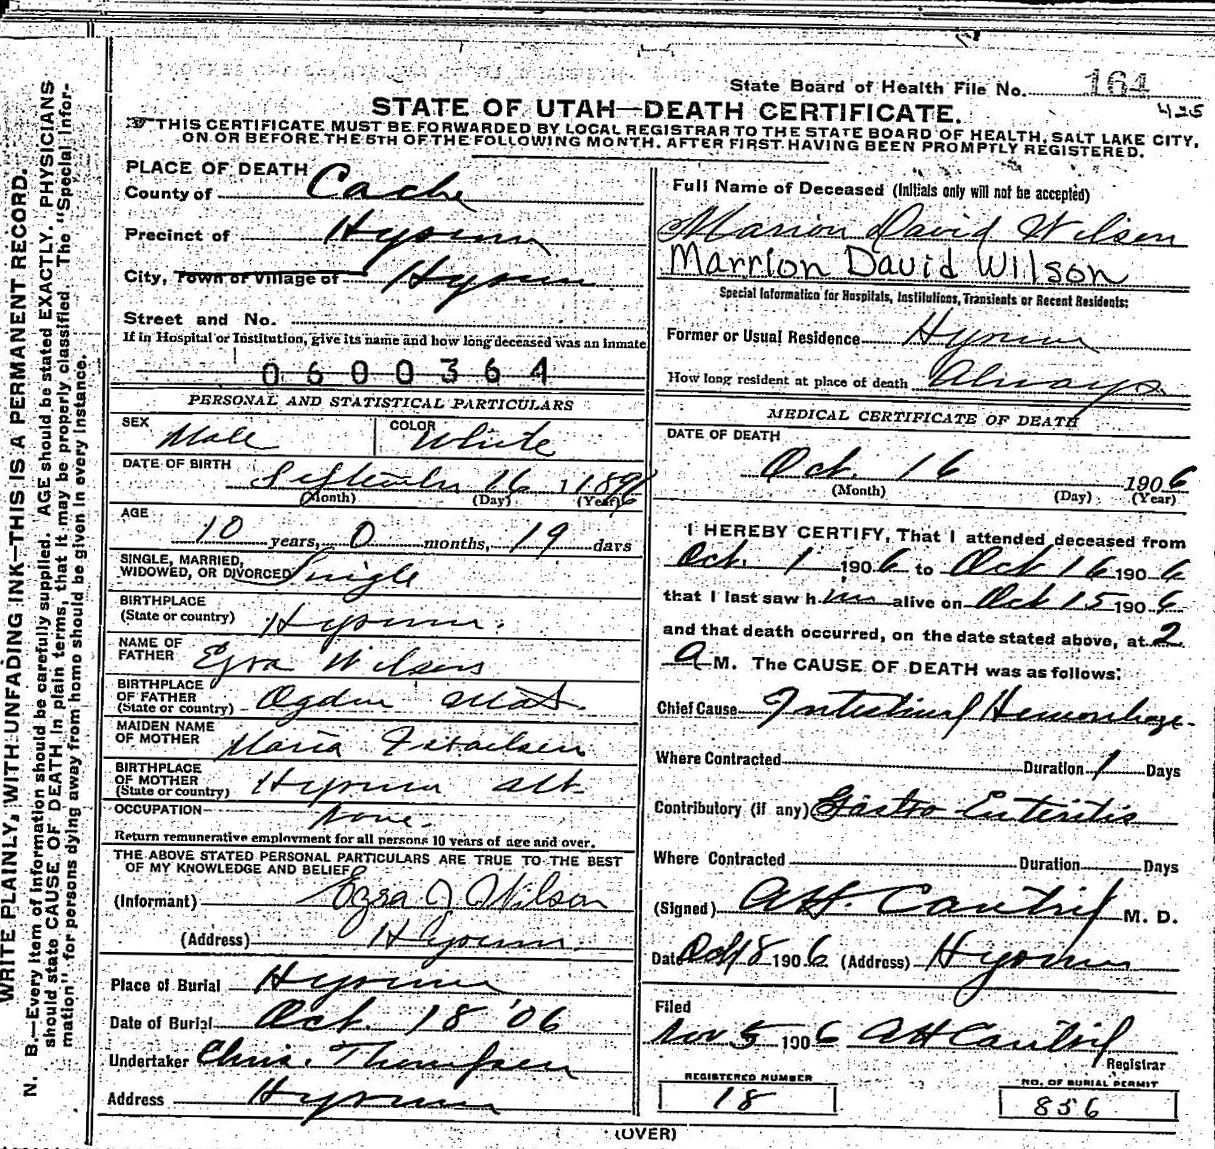 State Board of Health File No. 164
425
STATE OF UTAH—DEATH CERTIFICATE.
THIS CERTIFICATE MUST BE FORWARDED BY LOCAL REGISTRAR TO THE STATE BOARD OF HEALTH, SALT LAKE CITY,
ON OR BEFORE THE 5TH OF THE FOLLOWING MONTH, AFTER FIRST HAVING BEEN PROMPTLY REGISTERED.
WRITE PLAINLY, WITH UNFADING INK—THIS IS A PERMANENT RECORD.
N. B.—Every item of information should be carefully supplied. AGE should be stated EXACTLY. PHYSICIANS
should state CAUSE OF DEATH in plain terms, that it may be properly classified. The "Special Infor-
mation" for persons dying away from home should be given in every instance.
PLACE OF DEATH
County of Cache
Precinct of Hyrum
City, Town or Village of Hyrum
Street and No.
If in Hospital or Institution, give its name and how long deceased was an inmate
0600364
PERSONAL AND STATISTICAL PARTICULARS
SEX Male COLOR White
DATE OF BIRTH September 16 1896
(Month) (Day) (Year)
AGE
10 years, 0 months, 19 days
SINGLE, MARRIED,
WIDOWED, OR DIVORCED Single
BIRTHPLACE
(State or country) Hyrum.
NAME OF
FATHER Ezra Wilson
BIRTHPLACE
OF FATHER
(State or country) Ogden Utah.
MAIDEN NAME
OF MOTHER Maria
BIRTHPLACE
OF MOTHER
(State or country) Hyrum Ut.
OCCUPATION None.
Return remunerative employment for all persons 10 years of age and over.
THE ABOVE STATED PERSONAL PARTICULARS ARE TRUE TO THE BEST
OF MY KNOWLEDGE AND BELIEF
(Informant) Ezra J Wilson
(Address) Hyrum.
Place of Burial Hyrum
Date of Burial Oct. 18 '06
Undertaker Chris. Thompsen
Address Hyrum
Full Name of Deceased (Initials only will not be accepted)
Marion David Wilson
Marrion David Wilson
Special Information for Hospitals, Institutions, Transients or Recent Residents:
Former or Usual Residence Hyrum
How long resident at place of death Always
MEDICAL CERTIFICATE OF DEATH
DATE OF DEATH
Oct. 16 1906
(Month) (Day) (Year)
I HEREBY CERTIFY, That I attended deceased from
Oct. 1 1906 to Oct 16 1906
that I last saw him alive on Oct 15 1906
and that death occurred, on the date stated above, at 2
A M. The CAUSE OF DEATH was as follows:
Chief Cause Intestinal Hemorrhage.
Where Contracted Duration 1 Days
Contributory (if any) Gastro Enteritis
Where Contracted Duration Days
(Signed) AH. Cantril M. D.
Date Oct 18 1906 (Address) Hyrum
Filed
Nov 5 1906 AH Cantril
Registrar
REGISTERED NUMBER
18
NO. OF BURIAL PERMIT
856
(OVER)